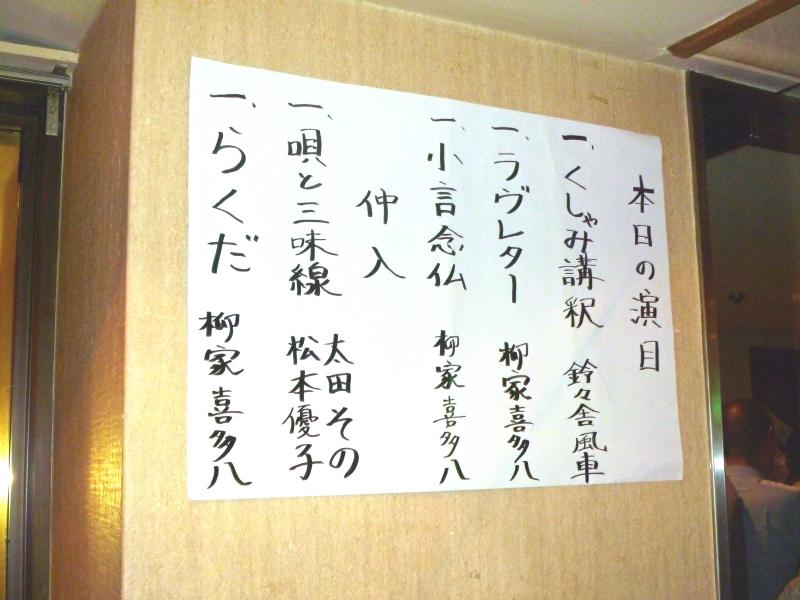 本日の演目
一、くしゃみ講釈 鈴々舎風車
一、ラヴレター 柳家喜多八
一、小言念仏 柳家喜多八
仲入
一、唄と三味線 太田その
松本優子
一、らくだ 柳家喜多八